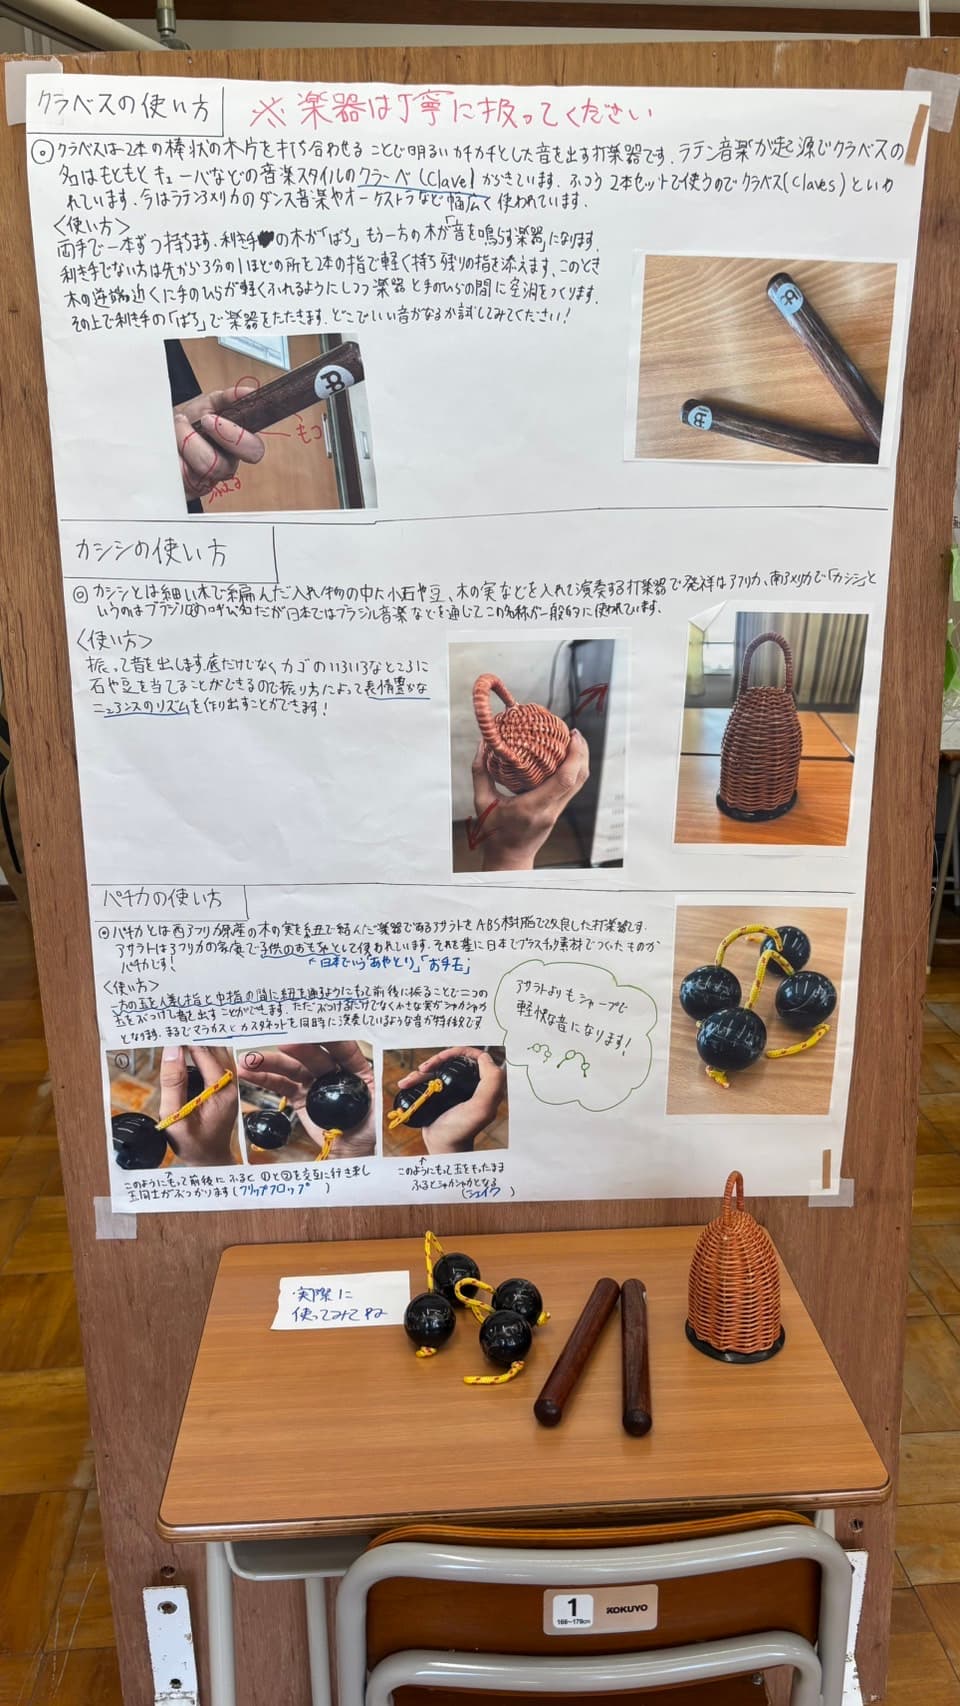 クラベスの使い方
※楽器は丁寧に扱ってください
◎クラベスは2本の棒状の木片を打ち合わせることで明るいカチカチとした音を出す打楽器です。ラテン音楽が起源でクラベスの
名はもともとキューバなどの音楽スタイルのクラーベ(Clave)からきています。ふつう2本セットで使うのでクラベス(Claves)といわ
れています。今はラテンアメリカのダンス音楽やオーケストラなど幅広く使われています。
〈使い方〉
両手で一本ずつ持ちます。利き手の木が「ばち」もう一方の木が「音を鳴らす楽器」になります。
利き手でない方は先から3分の1ほどの所を2本の指で軽く持ち残りの指を添えます。このとき
木の逆端近くに手のひらが軽くふれるようにしつつ楽器と手のひらの間に空洞をつくります。
その上で利き手の「ばち」で楽器をたたきます。どこでいい音がなるか試してみてください!
もつ
カシシの使い方
◎カシシとは細い木で編んだ入れ物の中に小石や豆、木の実などを入れて演奏する打楽器で発祥はアフリカ、南アメリカで「カシシ」と
いうのはブラジルの呼び名だが日本ではブラジル音楽などを通じてこの名称が一般的に使われています。
〈使い方〉
振って音を出します。底だけでなくカゴのいろいろなところに
石や豆を当てることができるので振り方によって表情豊かな
ニュアンスのリズムを作り出すことができます!
パチカの使い方
◎パチカとは西アフリカ原産の木の実を紐で結んだ楽器であるアサラトをABS樹脂で改良した打楽器です。
アサラトはアフリカの各地で子供のおもちゃとして使われています。それを基に日本でプラスチック素材でつくったものが
パチカです!
↖日本でいう「あやとり」「お手玉」
〈使い方〉
一方の玉を人差し指と中指の間に紐を通るようにもって前後に振ることで二つの
玉をぶつけ音を出すことができます。ただぶつけるだけでなく小さな実がシャカシャカ
となります。まるでマラカスとカスタネットを同時に演奏しているような音が特徴です
アサラトよりもシャープで
軽快な音になります!
①
②
このようにもって前後にふると①と②を交互に行き来し
玉同士がぶつかります(フリップフロップ)
このようにもって玉をもったまま
ふるとシャカシャカとなる
(シェイク)
実際に
使ってみてね
1
166~179cm
KOKUYO